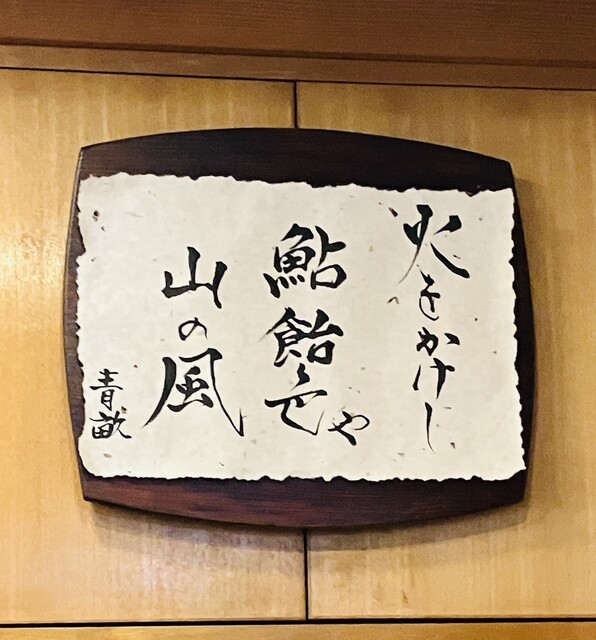 火をかけし
鮎飴色や
山の風
青畝